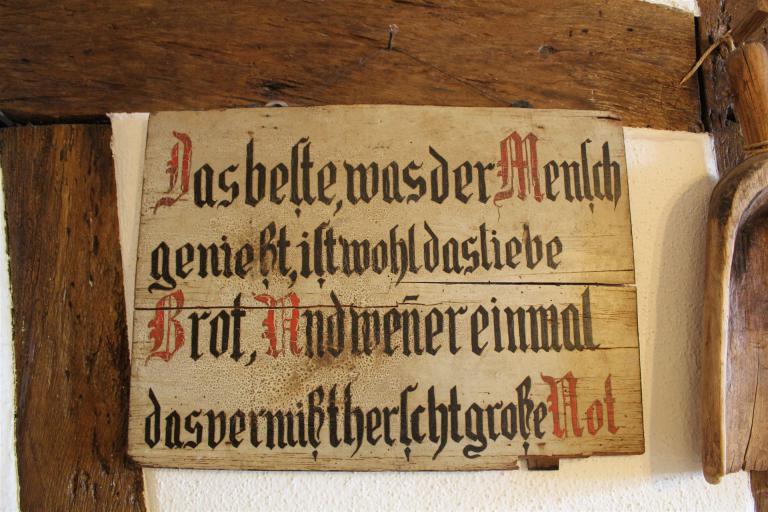 Das beste, was der Mensch
genießt, ist wohl das liebe
Brot, Und weñ er einmal
das vermißt herscht große Not